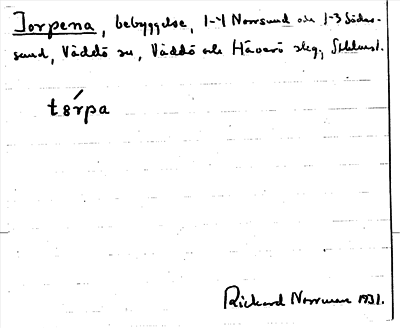 Torpena, bebyggelse, 1-4 Norrsund och 1-3 Söder-
sund, Väddö sn, Väddö och Häverö skg, Sthlmsl.
tȣ́rpa
Rickard Norrman 1931.